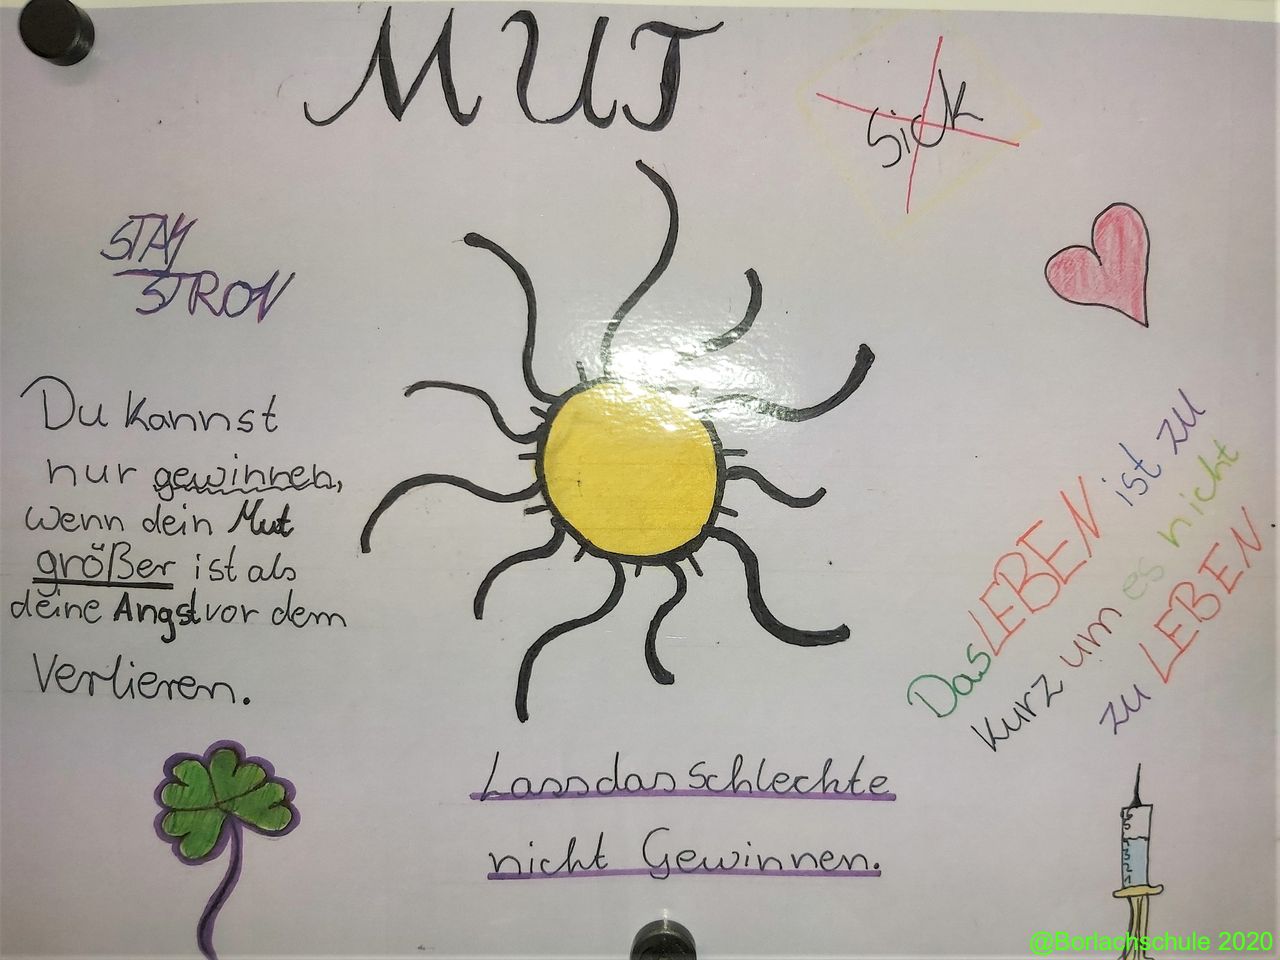 MUT
SicK
STAY
STRON
Du kannst
nur gewinnen,
wenn dein Mut
größer ist als
deine Angst vor dem
Verlieren.
Das LEBEN ist zu
kurz um es nicht
zu LEBEN
Lass das Schlechte
nicht Gewinnen.
@Borlachschule 2020